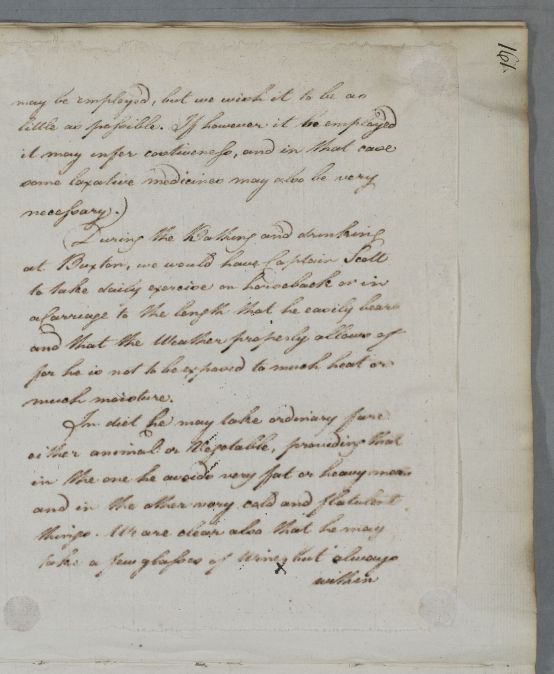 161.
may be employed, but we wish it to be as
little as possible. If however it be employed
it may infer costiveness, and in that case
some laxative medicines may also be very
necessary.)
(During the Bathing and drinking
at Buxton, we would have Captain Scott
to take daily exercise on horseback or in
a Carriage to the length that he easily bears
and that the Weather properly allows of
for he is not to be exposed to much heat or
much moisture.
In diet he may take ordinary fare
either animal or Vegetable, providing that
in the one he avoids very fat or heavy meats
and in the other very cold and flatulent
things. We are clear also that he may
take a few glasses of Wine, but always
x
within